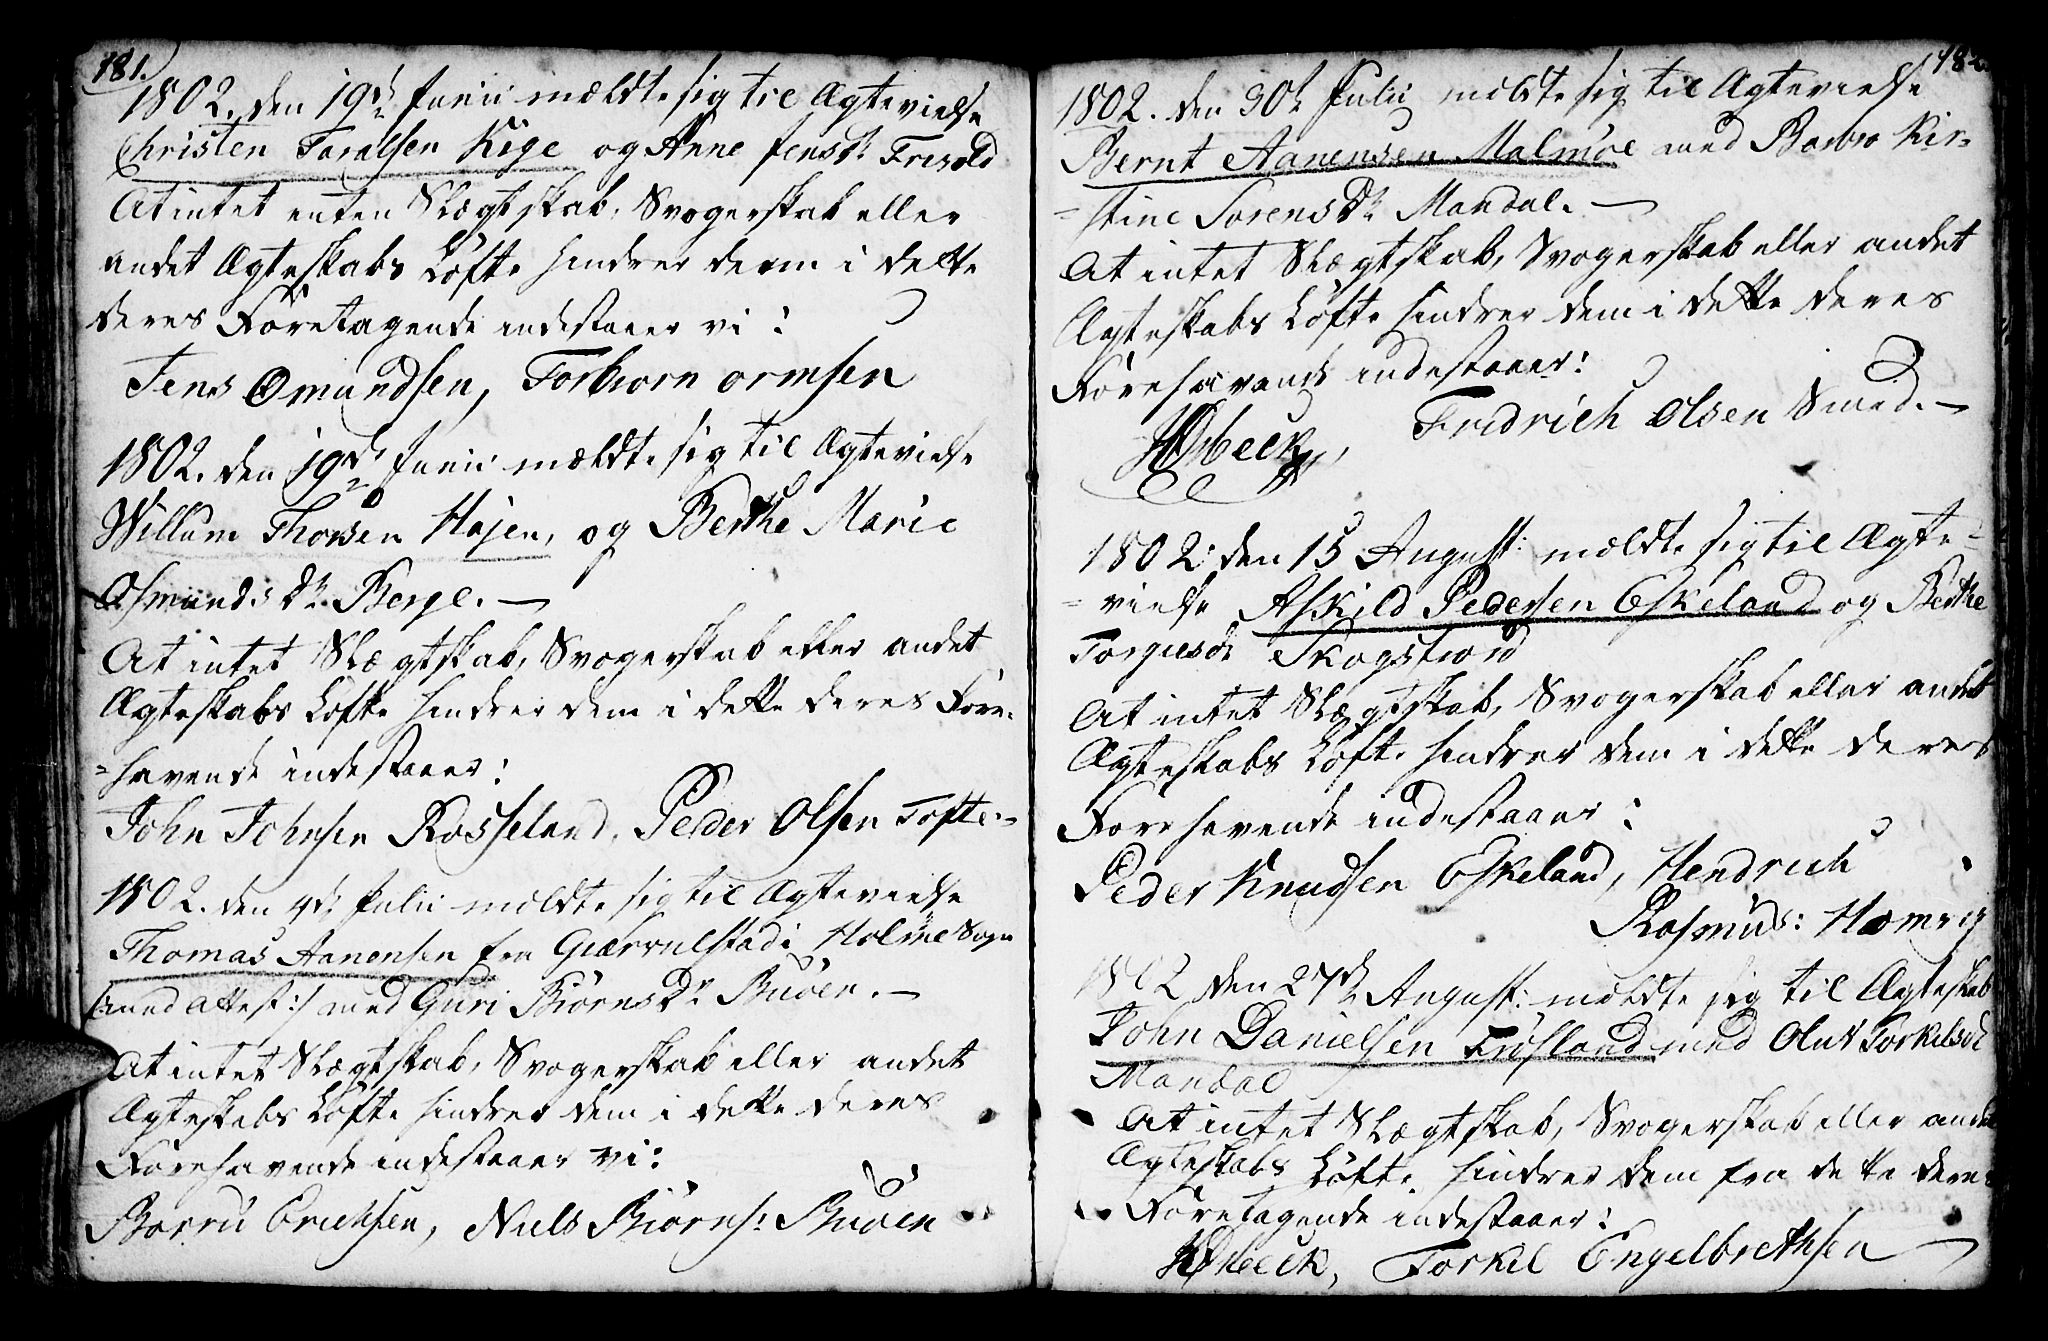 181.
1802. den 19de Junii mældte sig til Ægtevielse
Christen Taralsen Kige og Anne Jensdr Tresold
At intet enten Slægtskab, Svogerskab eller
andet Ægteskabs Løfte hindrer deem i dette
deres Foretagende indestaaer vi:
Jens Omundsen, Torbiorn ormsen
1802. den 19de Junii mældte sig til Ægtevielse
Willum Thorsen Højen, og Berthe Marie
Asmunds Dr. Berge. —
At intet Slægtskab, Svogerskab eller andet
Ægteskabs Løfte hindrer dem i dette deres Fore-
=havende indestaaer:
John Johnsen Rosseland, Peder Olsen Tofte.=
1802. den 9de Julii mældte sig til Ægtevielse
Thomas Aanensen fra Giærvulstad i Holme Sogn
(:med Attest:) med Guri Biørns Dr Buøen. —
At intet Slægtskab, Svogerskab eller andet
Ægteskabs Løfte hindrer dem i dette deres
Forehavende indestaaer vi:
Borru Erichsen, Niels Biørns: Buøen
182.
1802. den 30te Julii mældte sig til Ægtevielse
Bernt Aanensen Malmøe med Barbro Kir=
=stine Sørens Dr Mandal. —
At intet Slægtskab, Svogerskab eller andet
Ægteskabs Løfte hindrer dem i dette deres
Forehavende indestaaer:
Fridrich Olsen Smed. —
1802: den 15 August: mældte sig til Ægte=
=vielse Askild Pedersen Eskeland og Berthe
Torgiesdr Skogsfiord
At intet Slægtskab, Svogerskab eller andet
Ægteskabs Løfte hindrer dem i dette deres
Forehavende indestaaer:
Peder Knudsen Eskeland, Hendrich
Rasmus: Homrig
1802 den 27de August: mældte sig til Ægteskab
John Danielsen Frøsland med Olut Torkelsdr
Mandal
At intet Slægtskab, Svogerskab eller andet
Ægteskabs Løfte hindrer dem fra dette deres
Foretagende indestaaer:
Torkel Engelbrethsen —